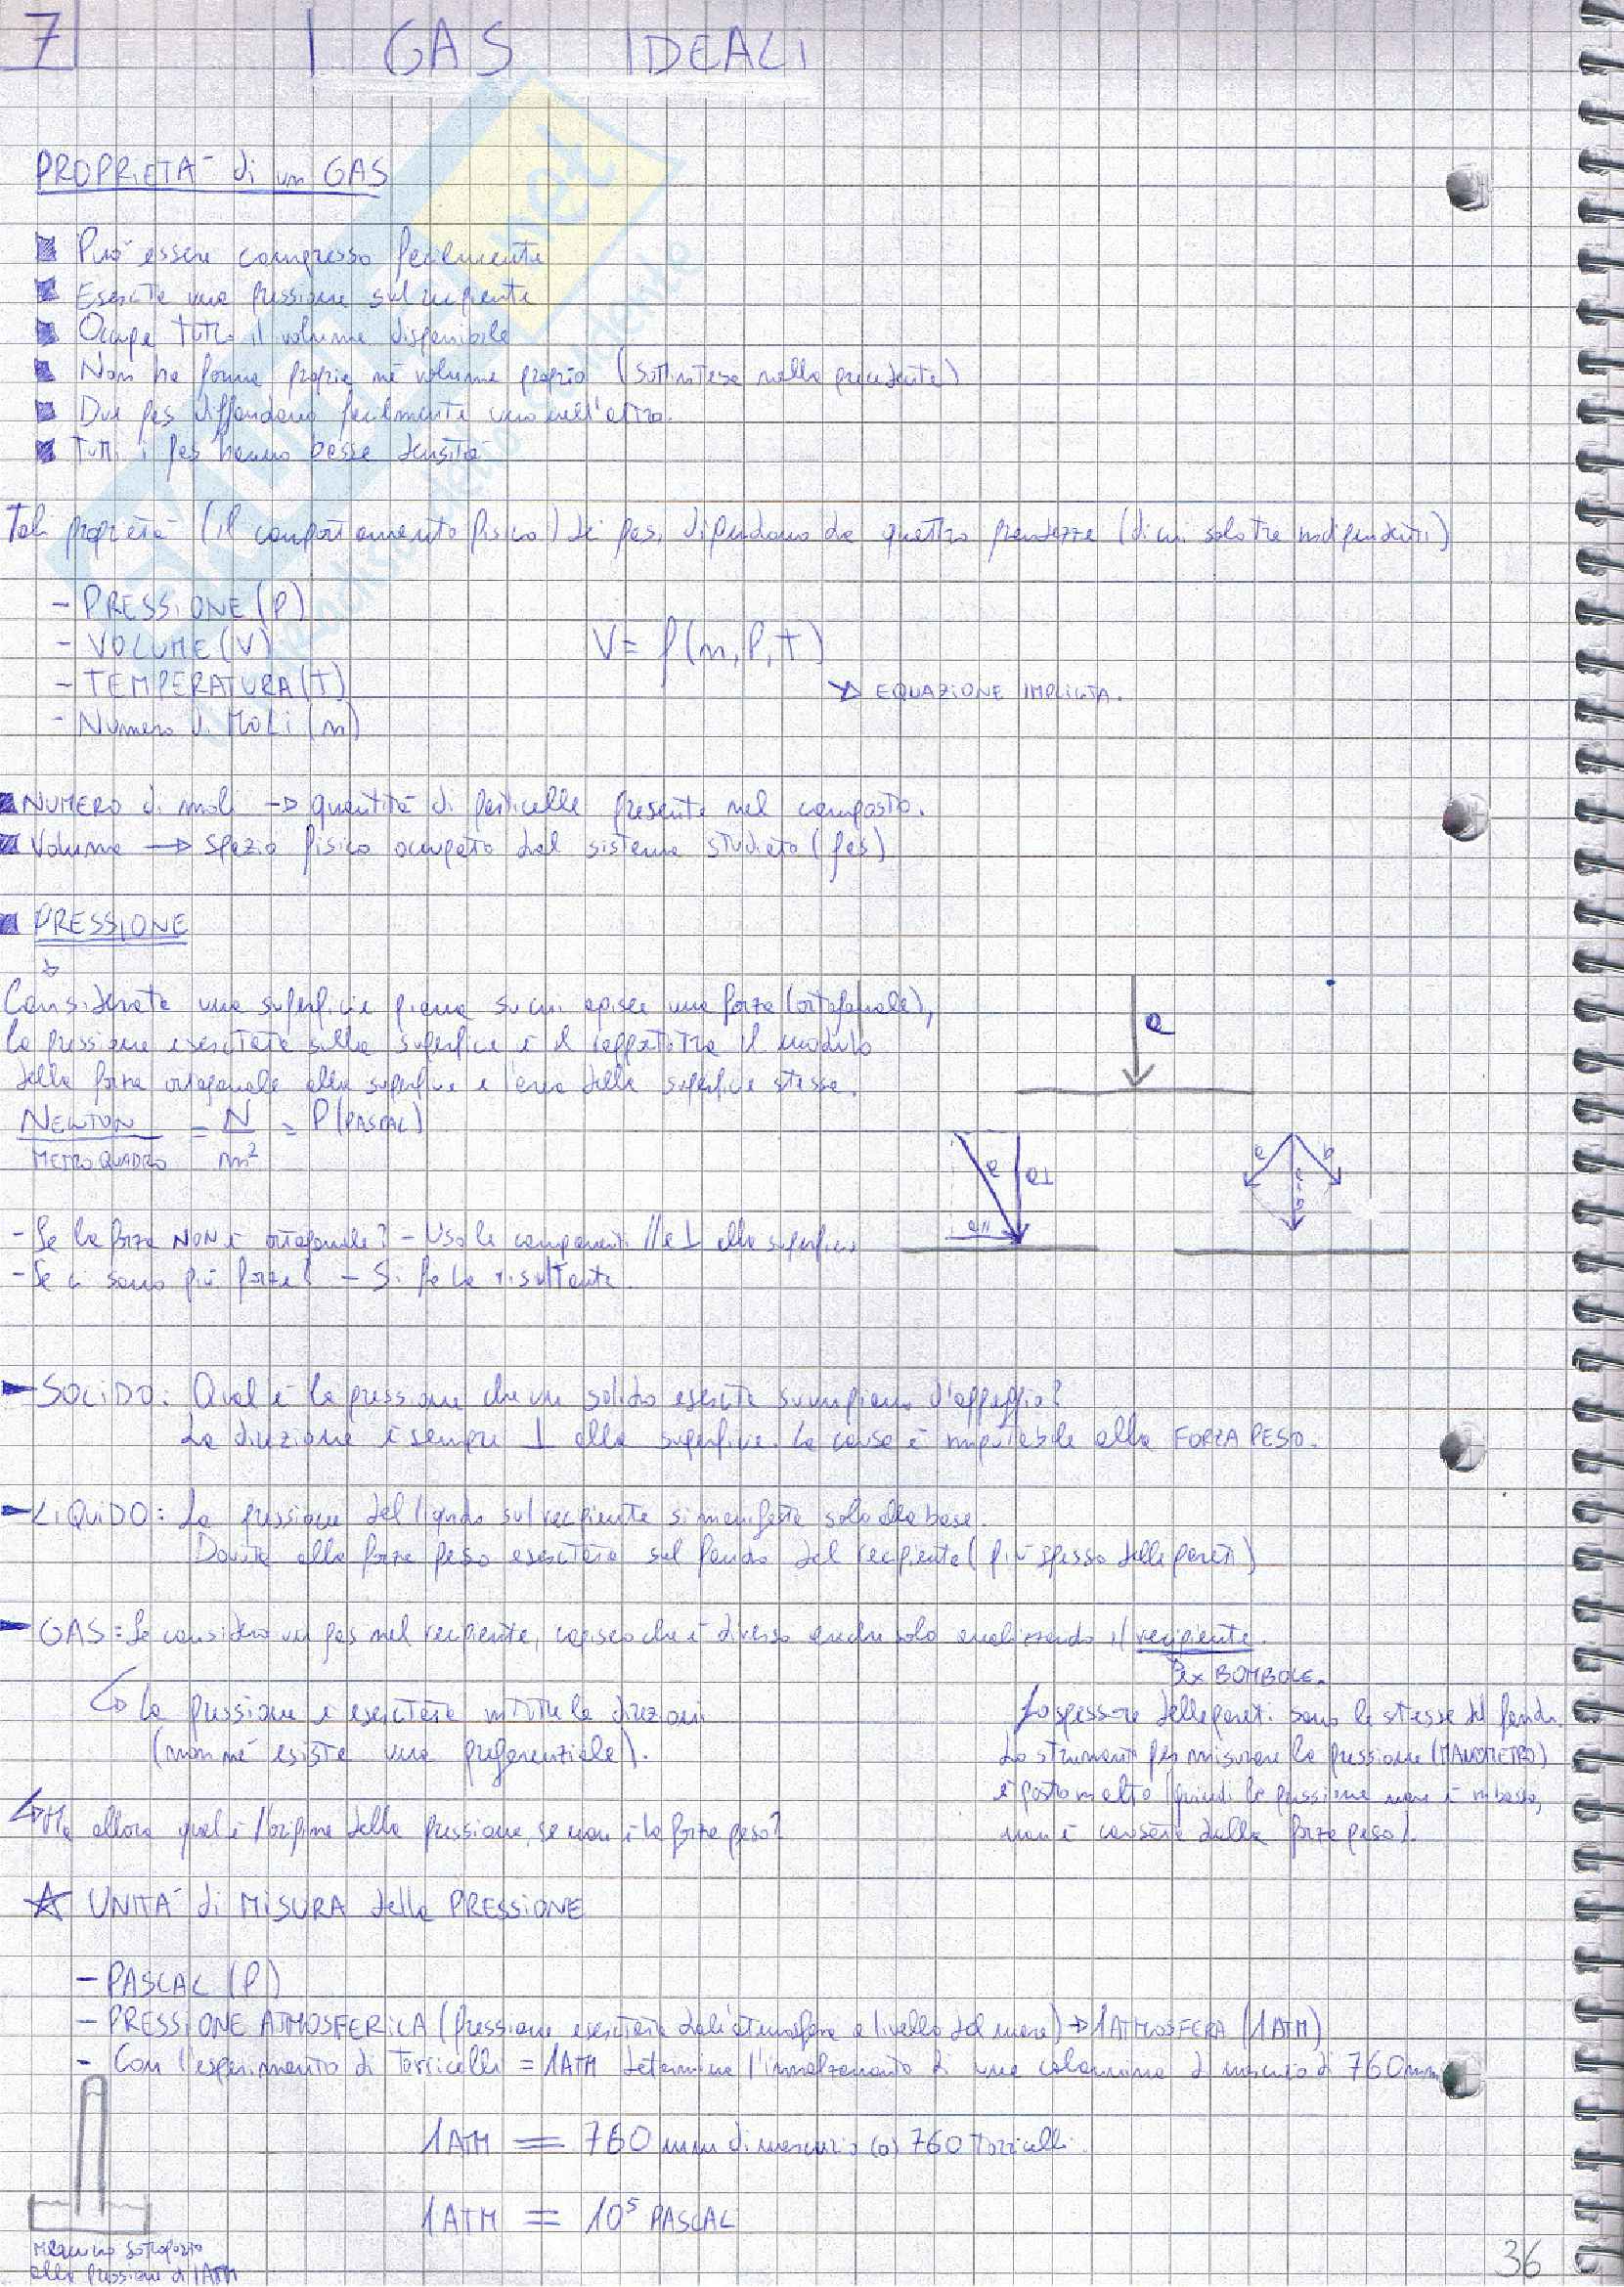 7 I GAS IDEALI
PROPRIETÀ di un GAS
Può essere compresso facilmente
Esercita una pressione sul recipiente
Occupa tutto il volume disponibile
Non ha forma propria né volume proprio (sottintesa nella precedente)
Due gas diffondono facilmente uno nell'altro.
Tutti i gas hanno bassa densità
Tali proprietà (il comportamento fisico) dei gas, dipendono da quattro grandezze (di cui solo tre indipendenti)
- PRESSIONE (P)
- VOLUME (V)
V = f(n, P, T)
- TEMPERATURA (T)
EQUAZIONE IMPLICITA.
- Numero di MOLI (n)
NUMERO di moli → quantità di particelle presente nel composto.
Volume → spazio fisico occupato dal sistema studiato (gas)
PRESSIONE
Considerata una superficie piana su cui agisce una forza (ortogonale),
la pressione esercitata sulla superficie è il rapporto tra il modulo
della forza ortogonale alla superficie e l'area della superficie stessa.
a
NEWTON / METRO QUADRO = N / m² = P (PASCAL)
a a⊥ a// a b a+b
- Se la forza NON è ortogonale? - Uso le componenti // e ⊥ alla superficie
- Se ci sono più forze? - Si fa la risultante.
- SOLIDO: Qual è la pressione che un solido esercita su un piano d'appoggio?
La direzione è sempre ⊥ alla superficie. La causa è imputabile alla FORZA PESO.
- LIQUIDO: La pressione del liquido sul recipiente si manifesta solo alla base.
Dovuta alla forza peso esercitata sul fondo del recipiente (più spesso delle pareti)
- GAS: Se considero un gas nel recipiente, capisco che è diverso anche solo analizzando il recipiente.
Ex BOMBOLE.
La pressione è esercitata in tutte le direzioni
(non né esiste una preferenziale).
Lo spessore delle pareti sono le stesse del fondo.
Lo strumento per misurare la pressione (MANOMETRO)
è posto in alto (quindi la pressione non è in basso,
non è causata dalla forza peso).
Ma allora qual è l'origine della pressione, se non è la forza peso?
☆ UNITÀ di MISURA della PRESSIONE
- PASCAL (P)
- PRESSIONE ATMOSFERICA (pressione esercitata dall'atmosfera a livello del mare) → 1 ATMOSFERA (1 ATM)
- Con l'esperimento di Torricelli = 1 ATM determina l'innalzamento di una colonnina di mercurio di 760 mm
1 ATM = 760 mm di mercurio (o) 760 Torricelli.
1 ATM = 10⁵ PASCAL
Mercurio sottoposto
alla pressione di 1 ATM
36